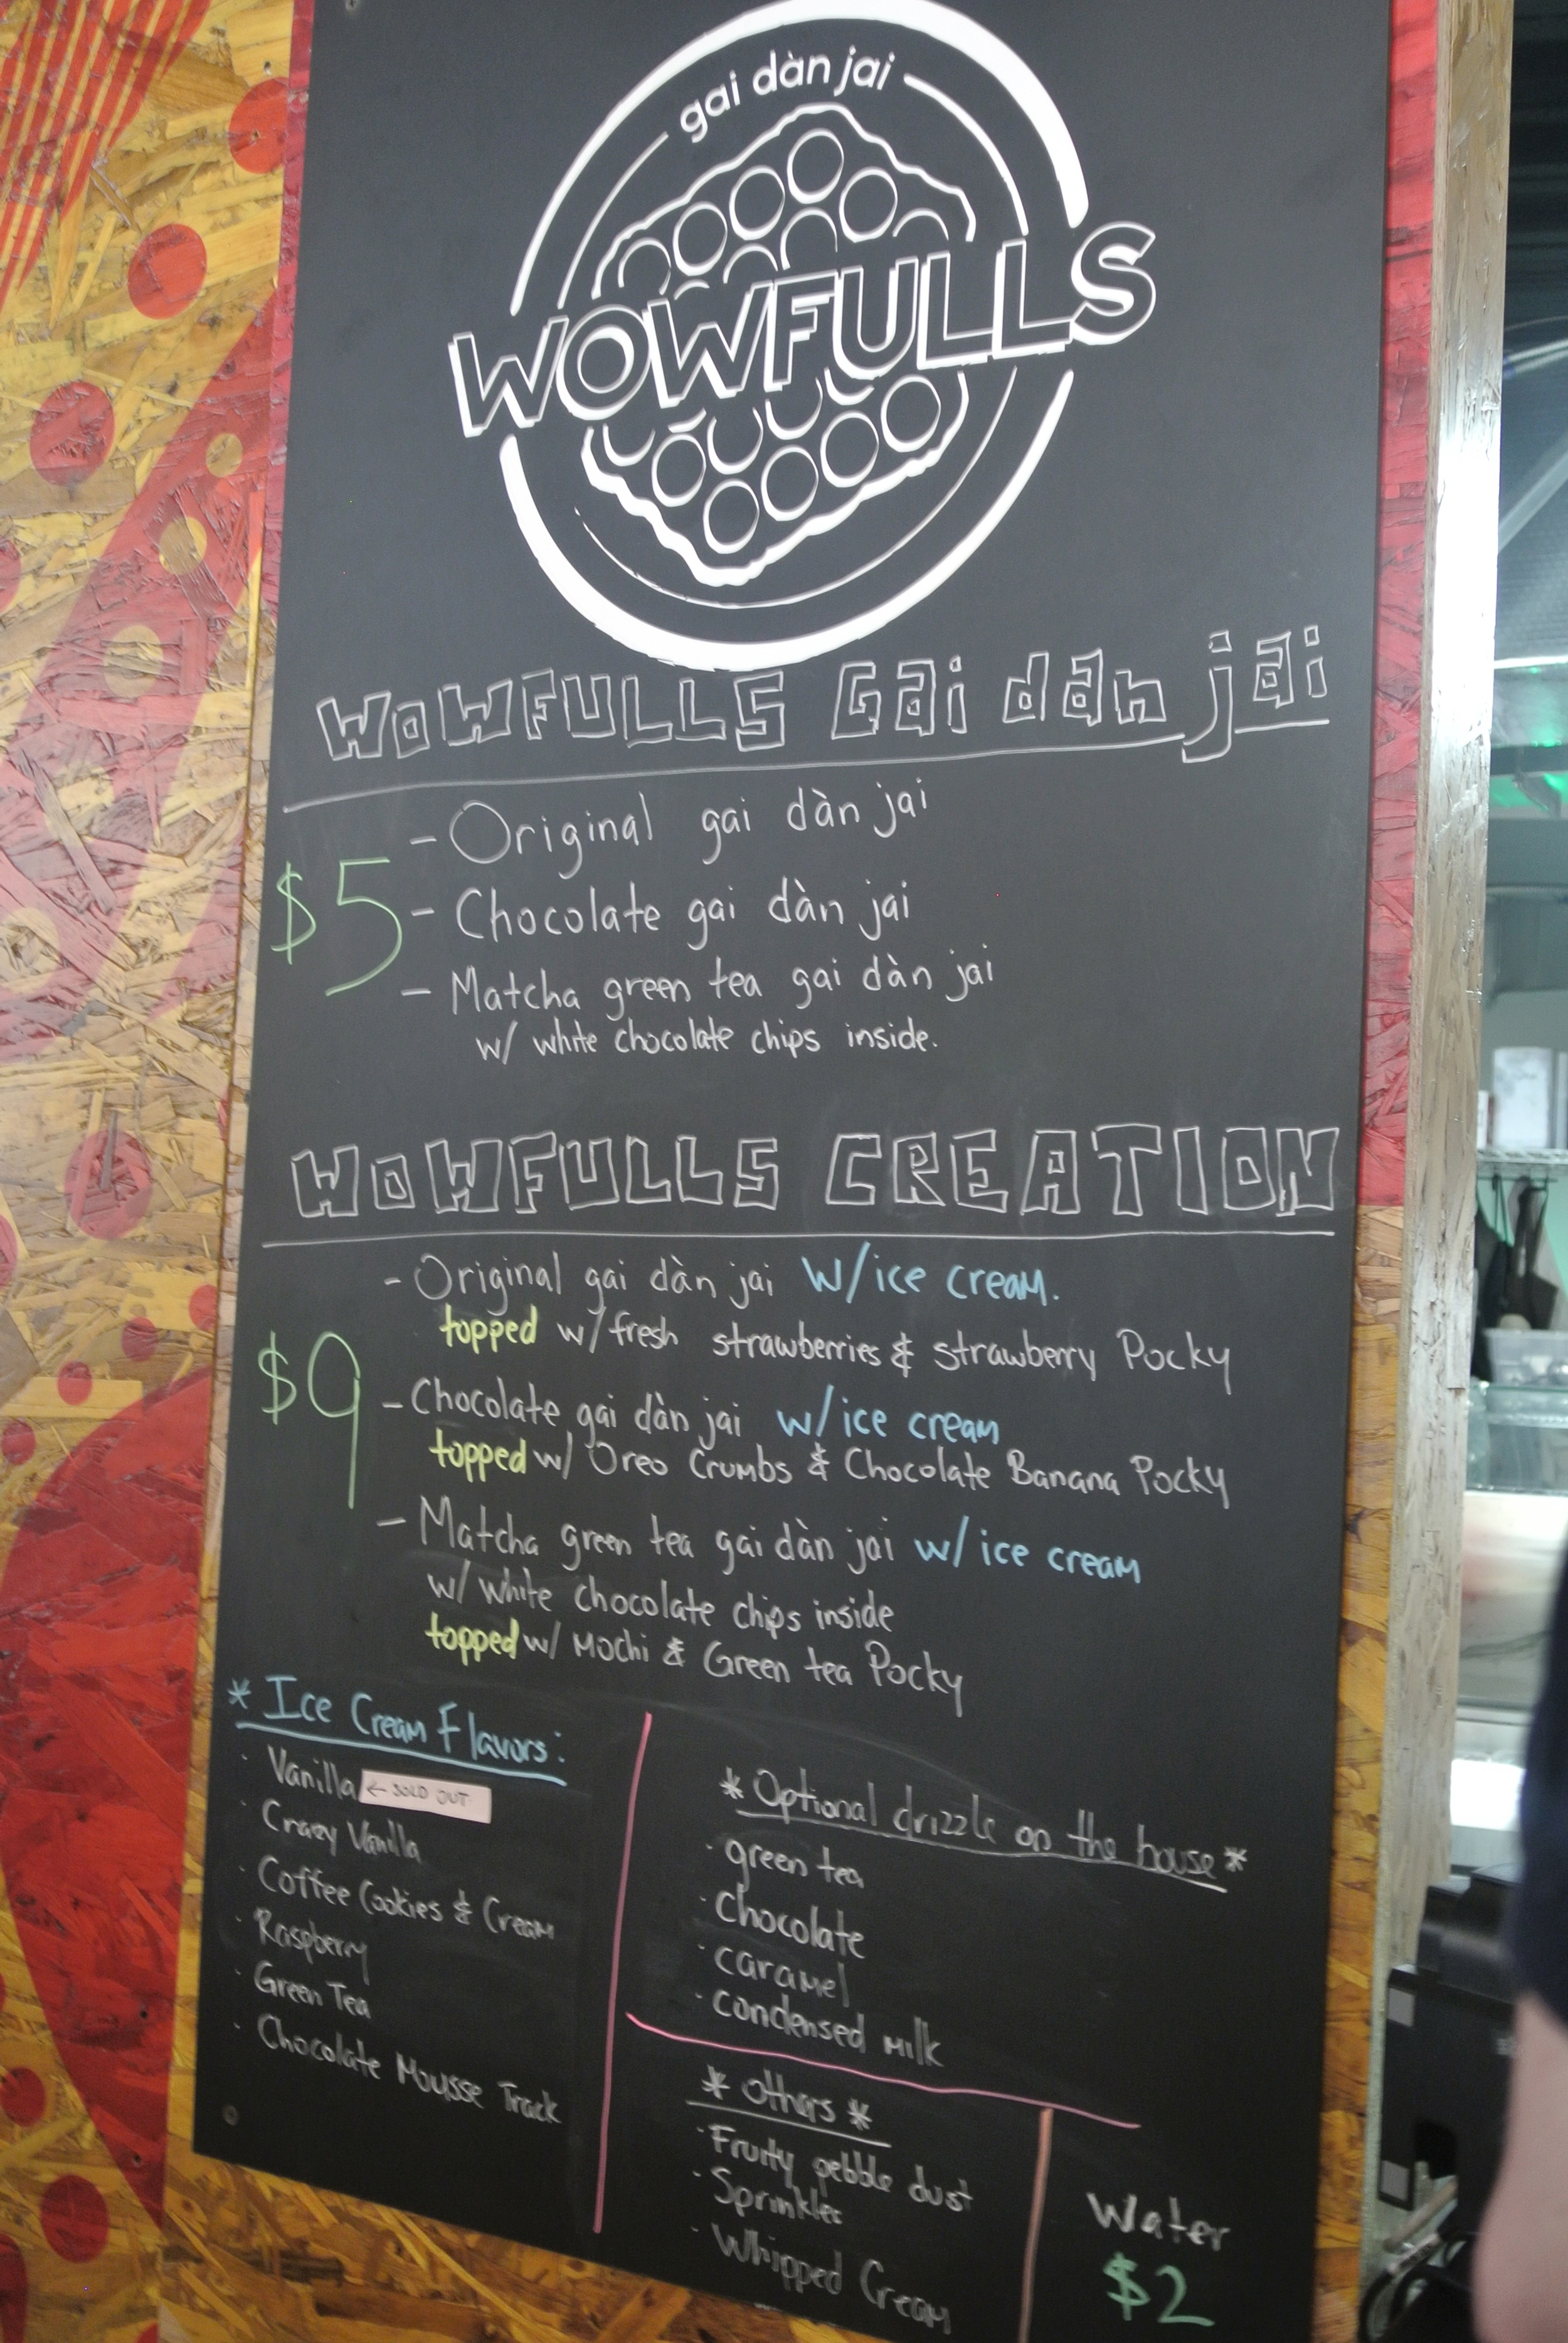 gai dàn jai
WOWFULLS
WOWFULLS Gai dan jai
- Original gai dàn jai
$5
- Chocolate gai dàn jai
- Matcha green tea gai dàn jai
w/ white chocolate chips inside.
WOWFULLS CREATION
- Original gai dàn jai w/ice cream.
topped w/fresh strawberries & strawberry Pocky
$9
- Chocolate gai dàn jai w/ice cream
topped w/ Oreo Crumbs & Chocolate Banana Pocky
- Matcha green tea gai dàn jai w/ ice cream
w/ white chocolate chips inside
topped w/ Mochi & Green tea Pocky
* Ice Cream Flavors:
· Vanilla ← SOLD OUT
· Crazy Vanilla
· Coffee Cookies & Cream
· Raspberry
· Green Tea
· Chocolate Mousse Track
* Optional drizzle on the house *
· green tea
· Chocolate
· caramel
· condensed milk
* others *
· Fruity pebble dust
· Sprinkles
· Whipped Cream
Water
$2